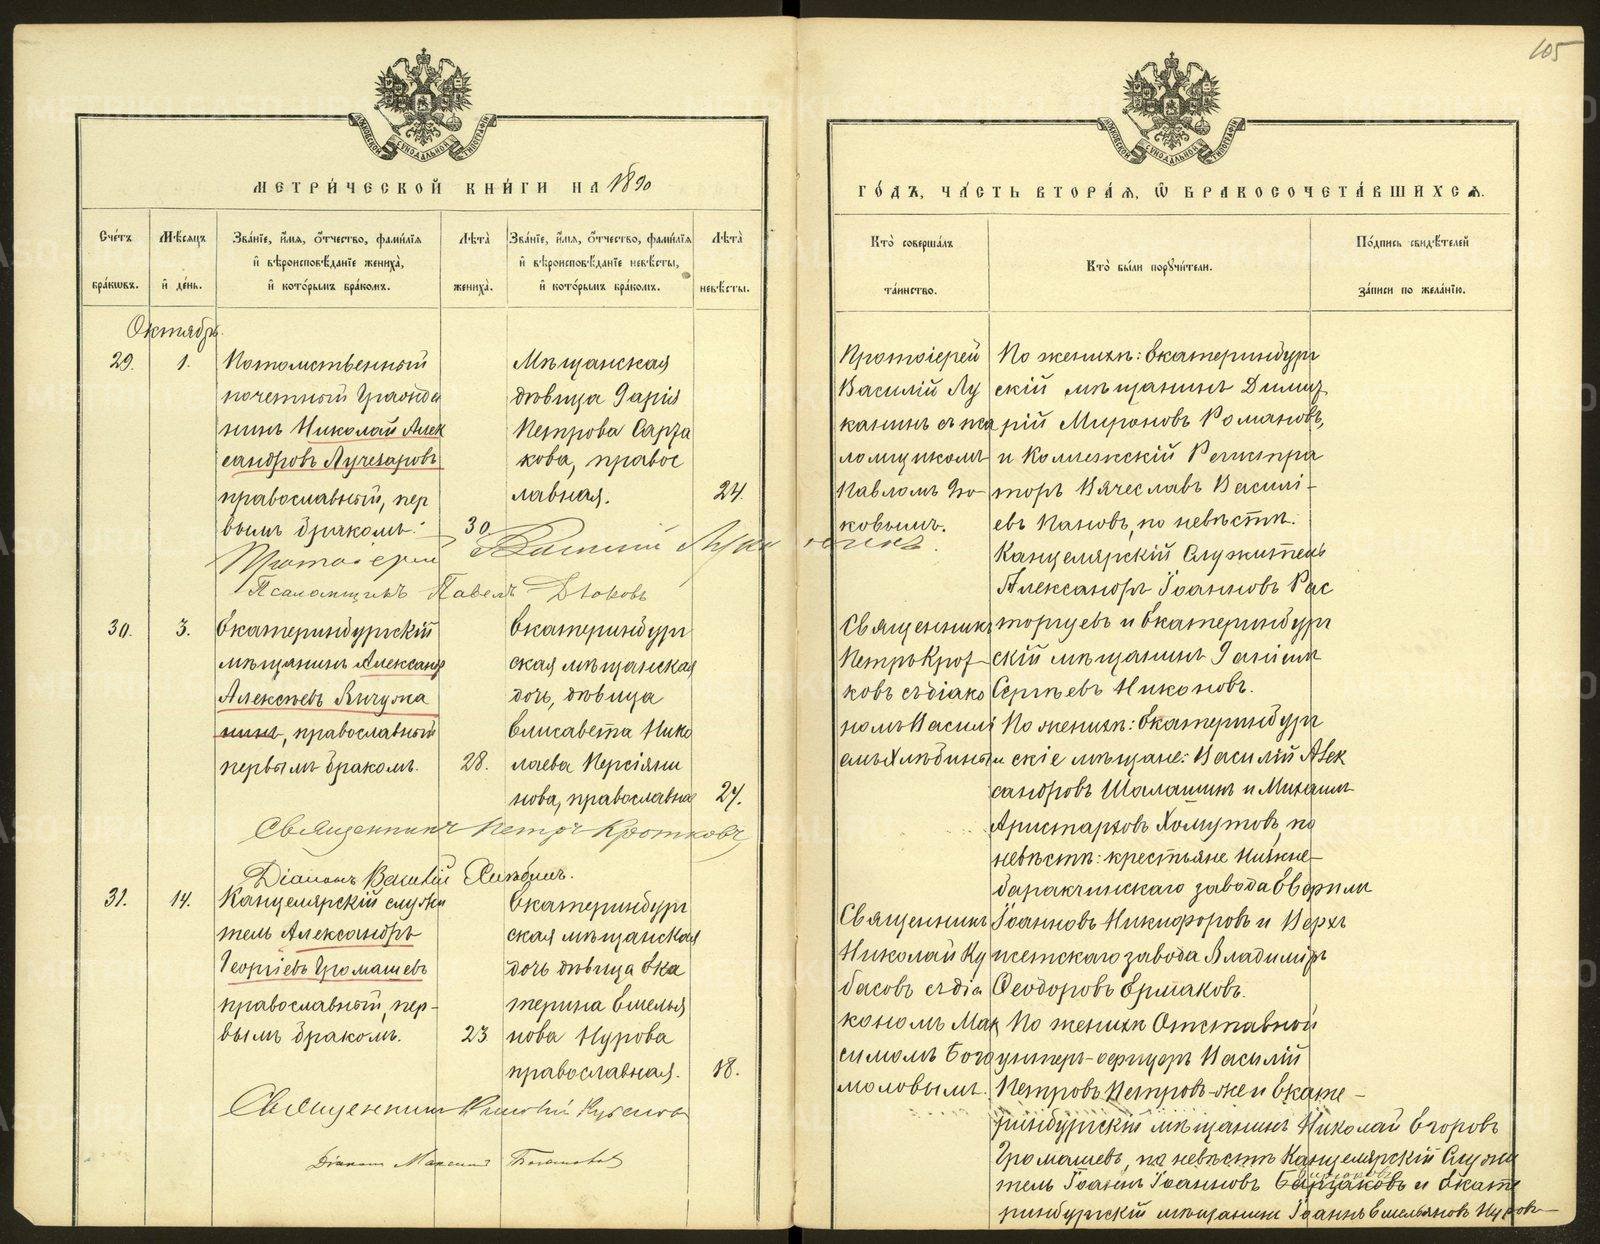 105
МОСКОВСКОЙ СѴНОДАЛЬНОЙ ТИПОГРАФІИ
МЕТРИ́ЧЕСКОЙ КНИ́ГИ НА 1890
Сче́тъ бра́кѡвъ.
Мѣсяцъ и҆ де́нь.
Зва́нїе, и҆́мѧ, ѻ҆́тчество, фами́лїѧ
и҆ вѣроисповѣ́данїе жениха̀,
и҆ кото́рымъ бра́комъ.
Лѣта̀ жениха̀.
Зва́нїе, и҆́мѧ, ѻ҆́тчество, фами́лїѧ
и҆ вѣроисповѣ́данїе невѣ́сты,
и҆ кото́рымъ бра́комъ.
Лѣта̀ невѣ́сты.
Октябрь.
29.
1.
Потомственный
почетный Гражда
нинъ Николай Алек
сандровъ Лучезаровъ
православный, пер
вымъ бракомъ.
30
Мѣщанская
дѣвица Дарія
Петрова Сарга
кова, правос
лавная.
24.
Протоіерей Василій Луканинъ.
Псаломщикъ Павелъ Дьяковъ
30.
3.
Екатеринбургскій
мѣщанинъ Александр
Алексѣевъ Вичужа
нинъ, православный
первымъ бракомъ.
28.
Екатеринбург
ская мѣщанская
дочь, дѣвица
Елисавета Нико
лаева Персіяни
нова, православная
27.
Священникъ Петръ Кротковъ
Діаконъ Василій Хлѣбинъ.
31.
14.
Канцелярскій служи
тель Александръ
Георгіевъ Громашевъ
православный, пер-
вымъ бракомъ.
23
Екатеринбург
ская мѣщанская
дочь дѣвица Ека
терина Емелья
нова Нурова
православная.
18.
Священникъ Николай Кубасовъ
Діаконъ Максимъ Богомоловъ
МОСКОВСКОЙ СѴНОДАЛЬНОЙ ТИПОГРАФІИ
ГО́ДЪ, ЧА́СТЬ ВТОРА́Ѧ, Ѽ БРАКОСОЧЕТА́ВШИХСѦ.
Кто̀ соверша́лъ
та́инство.
Кто̀ бы́ли порꙋчи́тели.
По́дпись свидѣ́телей
за́писи по жела́нїю.
Протоіерей
Василій Лу
канинъ съ пса
ломщикомъ
Павломъ Дья-
ковымъ.
По женихѣ: Екатеринбург
скій мѣщанинъ Димит
рій Мироновъ Романовъ,
и Коллежскій Регистра
торъ Вячеславъ Василі-
евъ Пановъ, по невѣстѣ:
Канцелярскій Служитель
Александръ Іоанновъ Рас
торгуевъ и Екатеринбург
скій мѣщанинъ Даніилъ
Сергѣевъ Никоновъ.
Священникъ
Петръ Крот-
ковъ съ діако
номъ Василі
емъ Хлѣбинымъ
По женихѣ: Екатеринбург
скіе мѣщане: Василій Алек
сандровъ Шалашинъ и Михаилъ
Аристарховъ Хомутовъ, по
невѣстѣ: крестьяне Нижне-
баранчинскаго завода Евфилъ
Іоанновъ Никифоровъ и Верхъ
исетскаго завода Владиміръ
Ѳеодоровъ Ермаковъ.
Священникъ
Николай Ку
басовъ съ діа
кономъ Мак
симомъ Бого
моловымъ.
По женихѣ Отставной
унтеръ-офицеръ Василій
Петровъ Петровъ-же и Екате-
ринбургскій мѣщанинъ Николай Егоровъ
Громашевъ, по невѣстѣ Канцелярскій Служи
тель Іоаннъ Іоанновъ Барзаковъ и Екате
ринбургскій мѣщанинъ Іоаннъ Емельяновъ Нуровъ